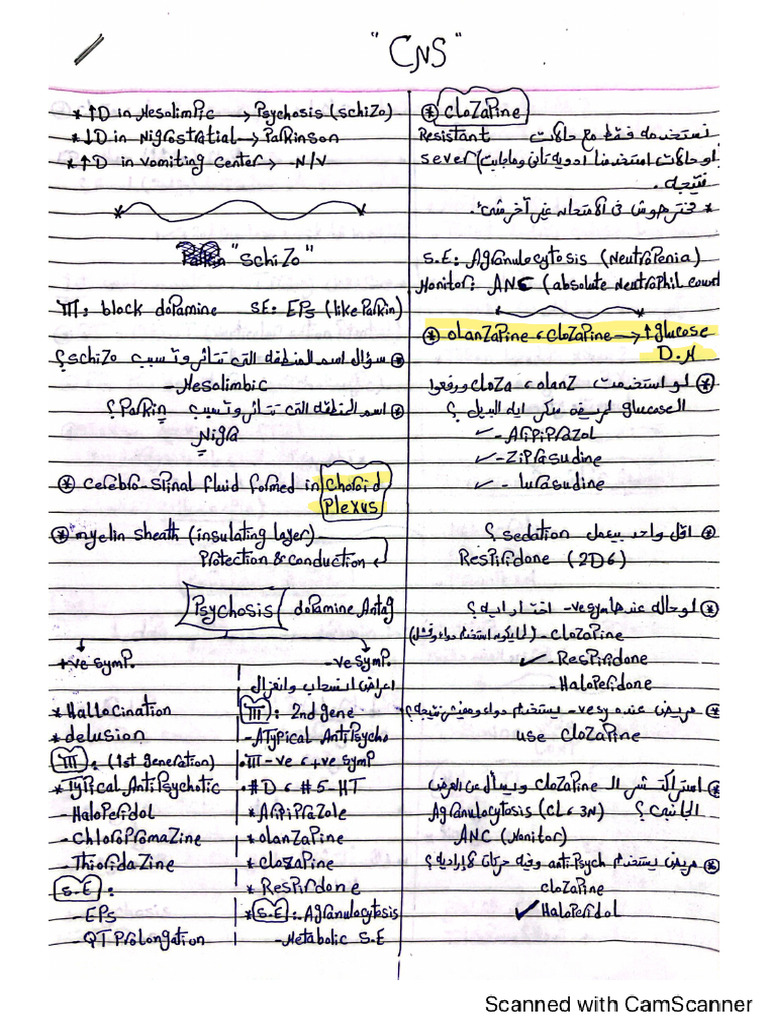 "CNS"
* ↑D in Mesolimpic → Psychosis (schizo)
* ↓D in Nigrostratial → Parkinson
* ↑D in vomiting Center → N/V
"Schizo"
TTT: block dopamine SE: EPS (like Parkin)
* سؤال اسم المنطقة التى تتأثر وتسبب schizo ؟
- Mesolimbic
* اسم المنطقة التى تتأثر وتسبب Parkin ؟
Nigra
* Cerebro-Spinal fluid formed in Choroid
Plexus
* myelin sheath (insulating layer)
Protection & conduction
Psychosis dopamine Antag
+ve symp.
* Hallocination
* delusion
TTT: (1st generation)
* Typical AntiPsychotic
- Haloperidol
- Chloropromazine
- Thioridazine
S.E:
- EPS
- QT Prolongation
-ve symp.
اعراض انسحاب وانعزال
TTT: 2nd gene
- ATypical AntiPsycho
• TTT -ve & +ve symp
• #D & #5-HT
* AriPiPrazole
* olanzapine
* clozapine
* Respirdone
* S.E: Agranulocytosis
- Metabolic S.E
* Clozapine
نستخدمه فقط مع حالات Resistant
sever (لو حالات استخدمنا ادويه تانى وماجابت
نتيجه.
* متختارهوش فى الامتحان غير آخر شئ.
S.E: Agranulocytosis (Neutropenia)
Monitor: ANC (absolute Neutrophil count
* olanzapine & Clozapine → ↑ glucose
D.M
* لو استخدمت olanz & cloza ورفعوا
الـ glucose لمريضه سكر ايه البديل ؟
✓ - AriPiPrazol
✓ - Ziprasudine
✓ - lurasudine
* اقل واحد بيعمل sedation ؟
Respiridone (2D6)
* لو حاله عندها -ve symp اختار ايه ؟
- clozapine (لما يكون استخدم دواء وفشل)
✓ - Respiridone
- Haloperidone
* مريض عنده -ve sy يستخدم دواء ومفيش نتيجه ؟
use clozapine
* استراكت شئ الـ clozapine ويسأل عن العرض
الجانبى ؟ Agranulocytosis (CL & 3N)
ANC (Monitor)
* مريض يستخدم anti psych وفيه حركات لاإراديه ؟
clozapine
✓ Haloperidol
Scanned with CamScanner